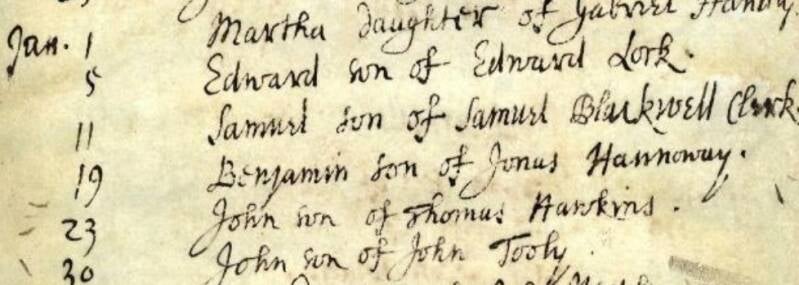 Jan. 1 Martha daughter of Gabriel
5 Edward son of Edward Lock.
11 Samuel son of Samuel Blackwell Clerk
19 Benjamin son of Jonas Hannoway.
23 John son of Thomas Hawkins.
30 John son of John Tooly